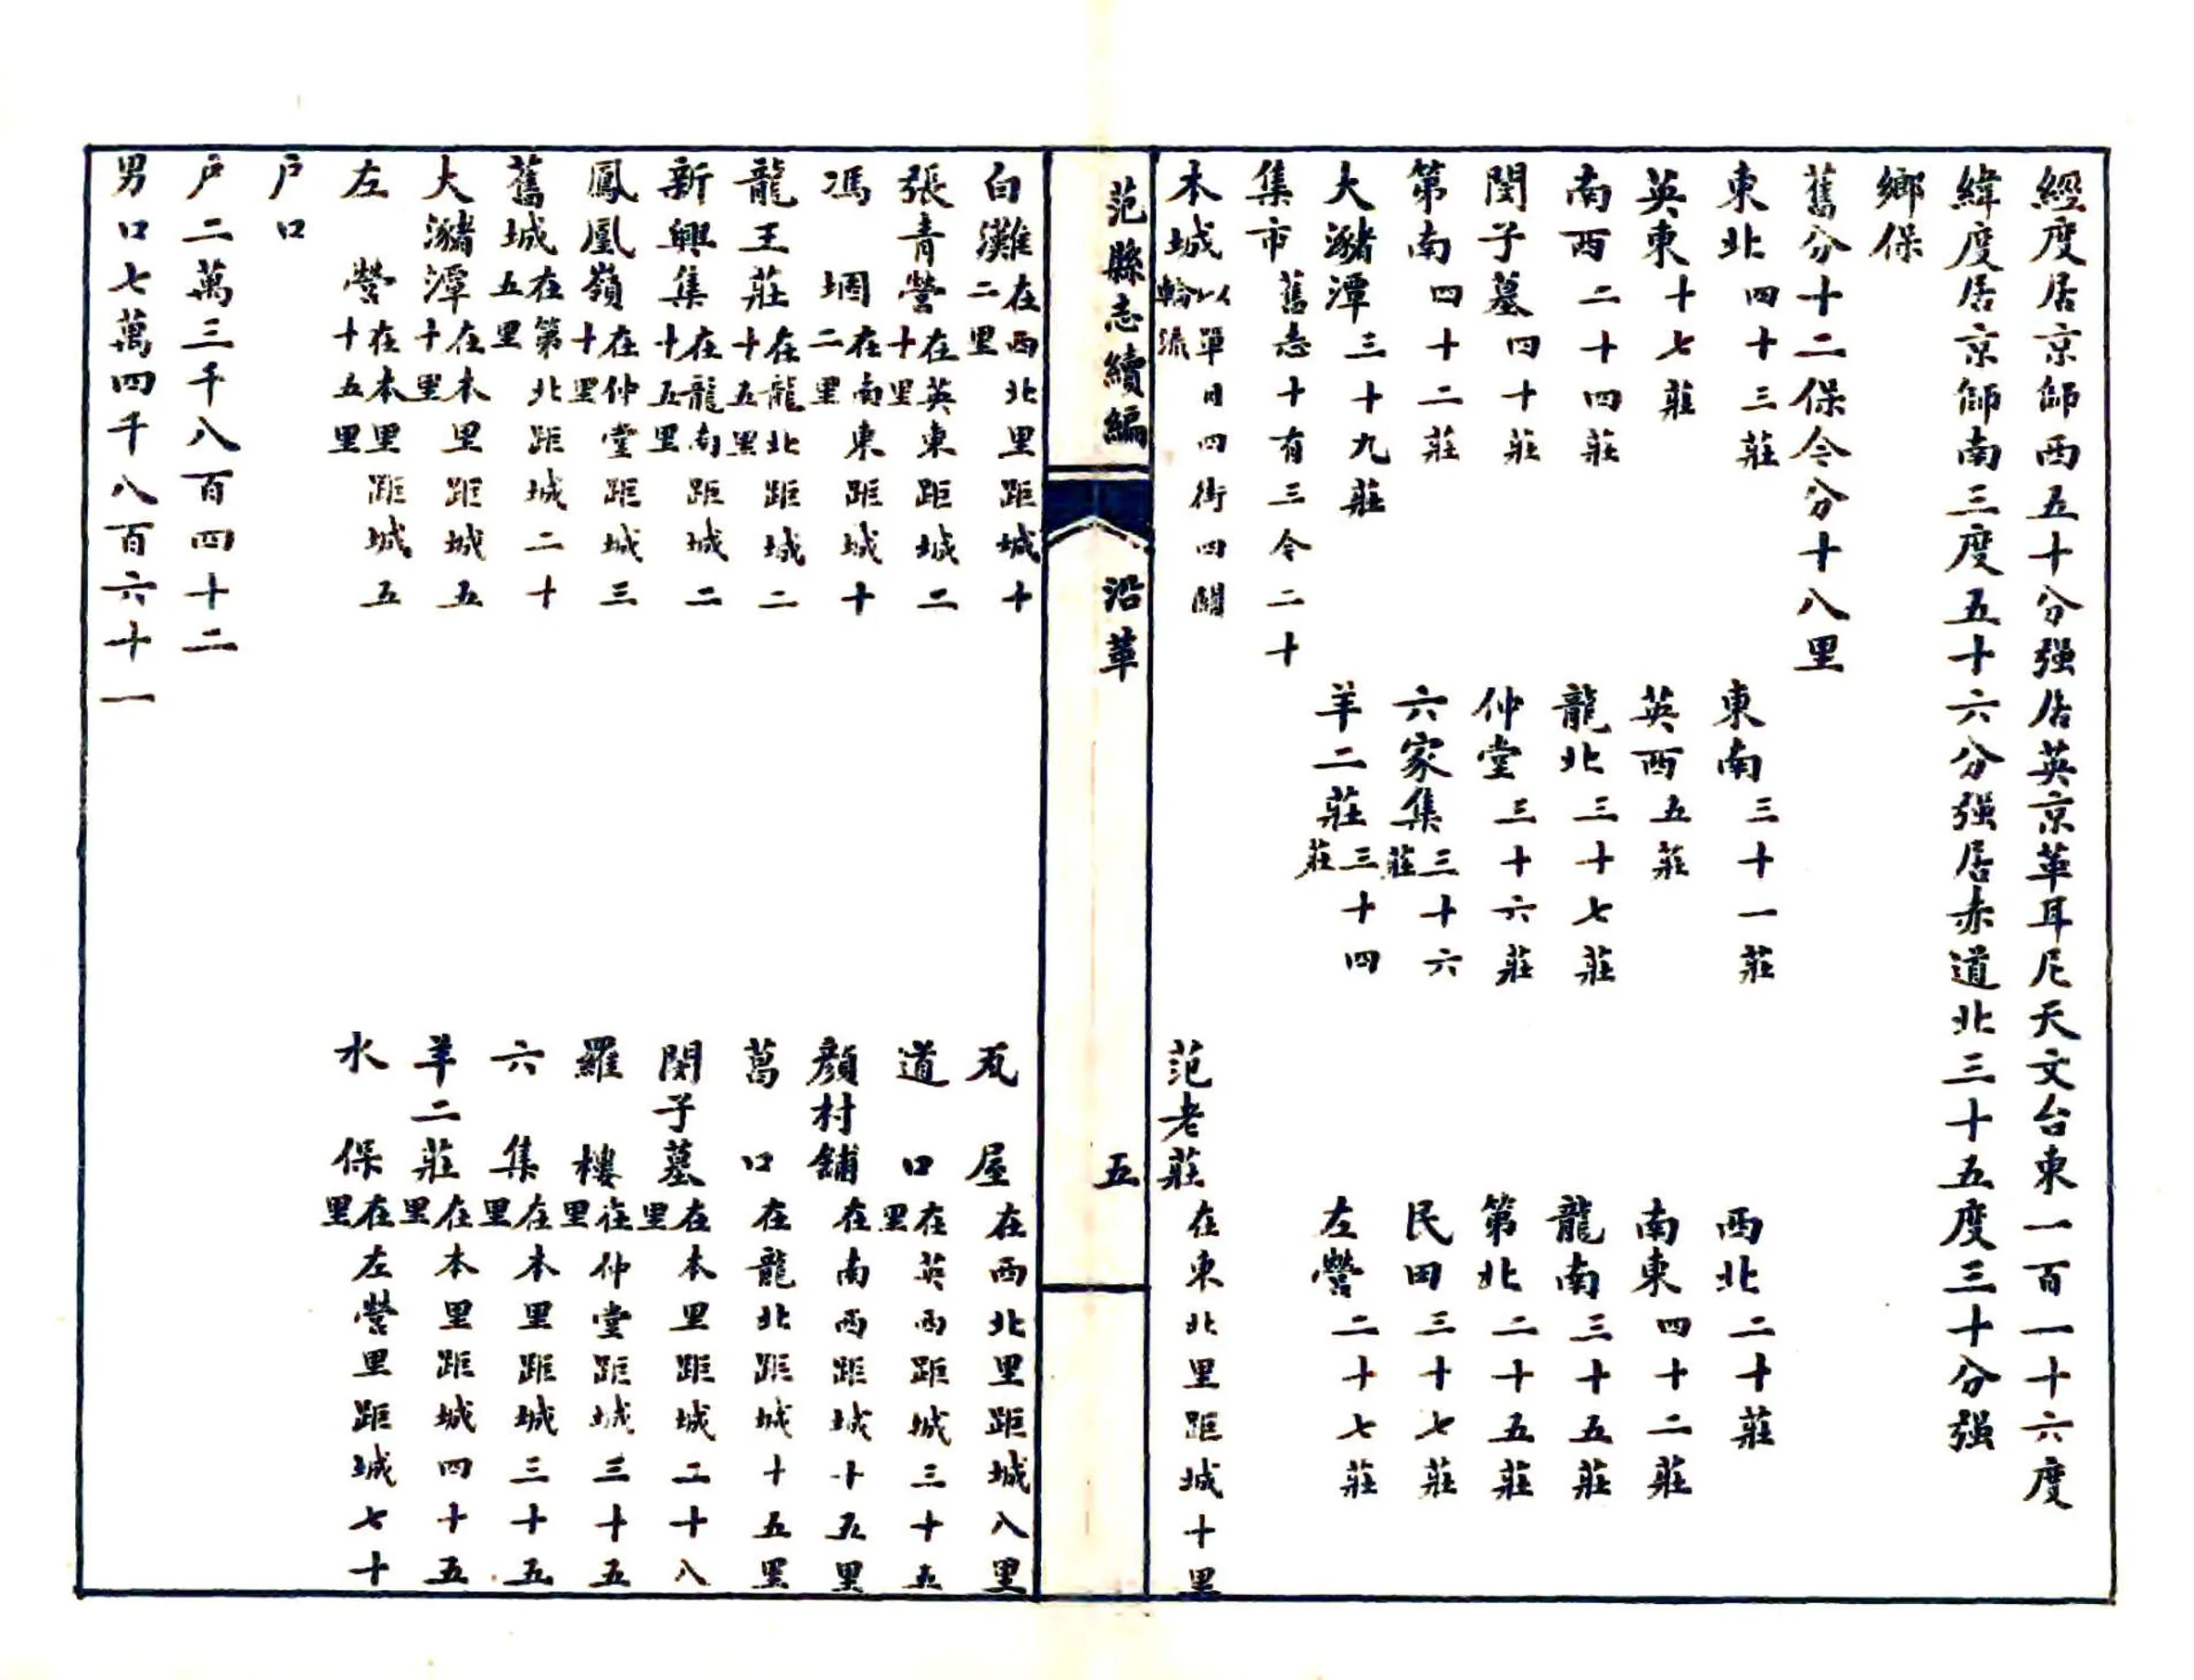 經度居京師西五十分强居英京革耳尼天文台東一百一十六度
緯度居京師南三度五十六分强居赤道北三十五度三十分强
鄉保
舊分十二保今分十八里
東北四十三莊 東南三十一莊 西北二十莊
英東十七莊 英西五莊 南東四十二莊
南西二十四莊 龍北三十七莊 龍南三十五莊
閔子墓四十莊 仲堂三十六莊 第北二十五莊
第南四十二莊 六家集三十六莊 民田三十七莊
大瀦潭三十九莊 羊二莊三十四莊 左營二十七莊
集市舊志十有三今二十
本城以單日四街四關輪流 范老莊在東北里距城十里
范縣志續編 沿革 五
白灘在西北里距城十二里 瓦屋在西北里距城八里
張青營在英東距城二十里 道口在英西距城三十五里
馮堌在南東距城十二里 顏村舖在南西距城十五里
龍王莊在龍北距城二十五里 葛口在龍北距城十五里
新興集在龍南距城二十五里 閔子墓在本里距城二十八里
鳳凰嶺在仲堂距城三十里 羅樓在仲堂距城三十五里
舊城在第北距城二十五里 六集在本里距城三十五里
大瀦潭在本里距城五十里 羊二莊在本里距城四十五里
左營在本里距城五十五里 水保在左營里距城七十里
戶口
戶二萬三千八百四十二
男口七萬四千八百六十一